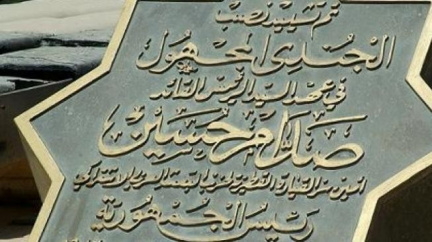 تم تشييد نصب
الجندي المجهول
في عهد السيد الرئيس القائد
صدام حسين
امين سر القيادة القطرية لحزب البعث العربي الاشتراكي
رئيس الجمهورية